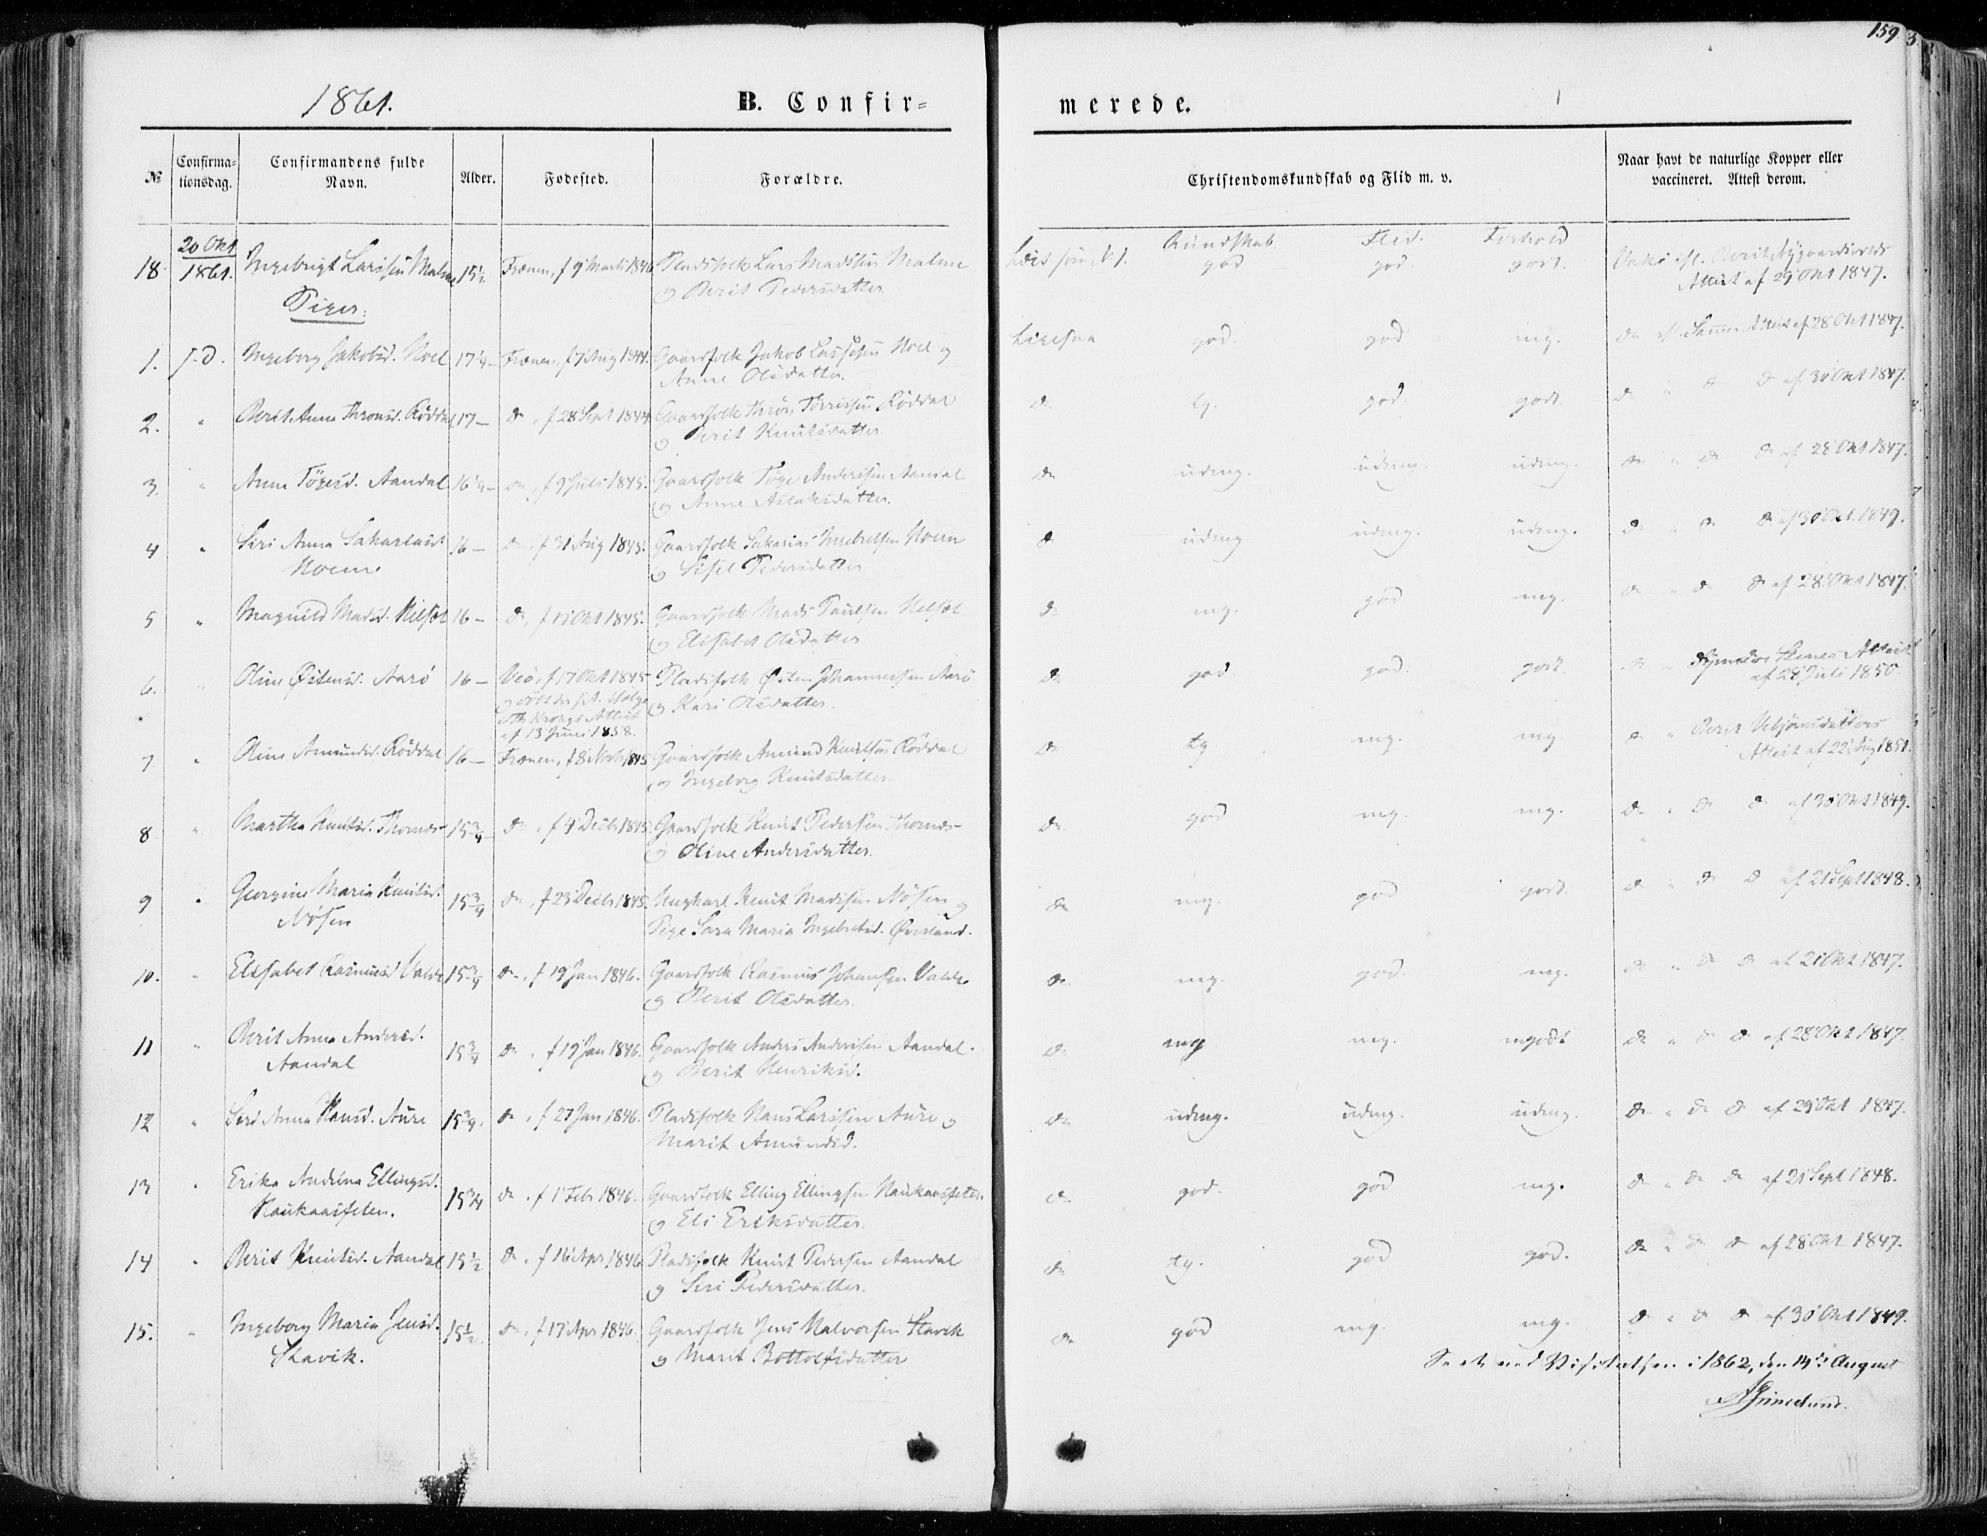 159
1861.
B. Confir=
merede.
№
Confirma=
tionsdag.
Confirmandens fulde
Navn.
Alder.
Fødested.
Forældre.
Christendomskundskab og Flid m. v.
Naar havt de naturlige Kopper eller
vaccineret. Attest derom.
Kundskab. Flid. Forhold
18. 20 Okt 1861. Ingebrigt Larssen Malme 15½ Frænen, f 9 Marts 1846 Pladsfolk Lars Madssen Malme
og Berit Pedersdatter.
god god. godt.
Attest af 29 Okt 1847.
Piger.
1. J. D. Ingeborg Jakobsd. Hoel 17¼ Frænen, f 7 Aug 1844. Gaardfolk Jakob Hoel og
Anne Olsdatter.
Ligesaa god. god mg. Attest af 28 Okt 1847.
2. " Berit Anna Thronsd. Røddal 17 – do, f 28 Sept 1844 Gaardfolk Røddal
og Berit Knutsdatter
do tg. god godt. do " do do af 30 Okt 1847.
3. " Anne Tøgesd. Aandal 16¼ – do, f 9 Juli 1845. Gaardfolk Tøge Anderssen Aandal
og Anne Aslaksdatter.
do udmg. udmg. udmg. do " do do af 28 Okt 1847.
4 " Siri Anna Sakariasd.
Hoem. 16 – do, f 31 Aug 1845. Gaardfolk Sakarias Ingebretsen Hoem
og Sisel Pedersdatter
do udmg udmg. udmg. do " do do af 30 Okt. 1849.
5 " Magnild Madsd. 16 – do, f 15 Okt 1845. Gaardfolk Mads Paulsen
og Elisabet Olsdatter
do mg. god mg. do " do do af 28 Okt 1847.
6. " Oline Østensd. Aarø 16 – Veø, f 17 Okt 1845
Attest
af 13 Juni 1858. Pladsfolk Østen Johannessen Aarø
og Kari Olsdatter.
do god. god. godt Attest
af 28 Juli 1850.
7 " Oline Amundsd. Røddal 16 – Frænen, f 8 Novb 1845 Gaardfolk Amund Knutsen Røddal
og Ingeborg Knutsdatter.
do tg. mg. mg. do " Berit
Attest af 22 Aug 1851.
8 " Martha Knutsd. 15¾ do, f 4 Decb 1845 Gaardfolk Knut Pedersen
og Oline Andersdatter.
do god mg. mg. do " do do af 30 Okt 1849.
9 " Georgine Maria Knutsd.
Nøsen 15¾ do, f 25 Decb 1845. Ungkarl Knut Madssen Nøsen og
Pige Sara Maria Ingebretsd. Øverland.
do mg. god godt. do " do do af 21 Sept 1848.
10. " Elisabet Rasmusd Valde 15¾ do, f 19 Jan 1846. Gaardfolk Rasmus Johansen Valde
og Berit Olsdatter.
do mg. god. mg. do " do do af 21 Okt 1847.
11 " Berit Anne Andersd.
Aandal 15¾ do, f 19 Jan 1846. Gaardfolk Anders Anderssen Aandal.
og Berit Henriksd.
do mg mg. mgodt do " do do af 28 Okt 1847.
12 " Seri Anna Hansd. Aure 15¾. do, f 27 Jan 1846. Pladsfolk Hans Larssen Aure og
Marit Amundsd.
do udmg. udmg. udmg. do " do do af 29 Okt 1847.
13 " Erika Andrina Ellingsd.
Haukaasseten. 15¾ do, f 1 Febr 1846. Gaardfolk Elling Ellingsen Haukaasseten
og Eli Eriksdatter.
do god. god mg. do " do do af 21 Sept 1848.
14 " Berit Knutsd. Aandal 15½ do, f 16 Apr 1846 Pladsfolk Knut Pedersen Aandal
og Seri Pedersdatter.
do tg. god god. do " do do af 28 Okt 1847.
15. " Ingeborg Maria Jensd.
Stavik. 15½. do, f 17 Apr 1846. Gaardfolk Jens Halvorsen Stavik
og Marit Bottolfsdatter
do god mg. mg. do " do do af 30 Okt 1849.
Seet ved Visitatsen i 1862, den 14de August
Grimelund.